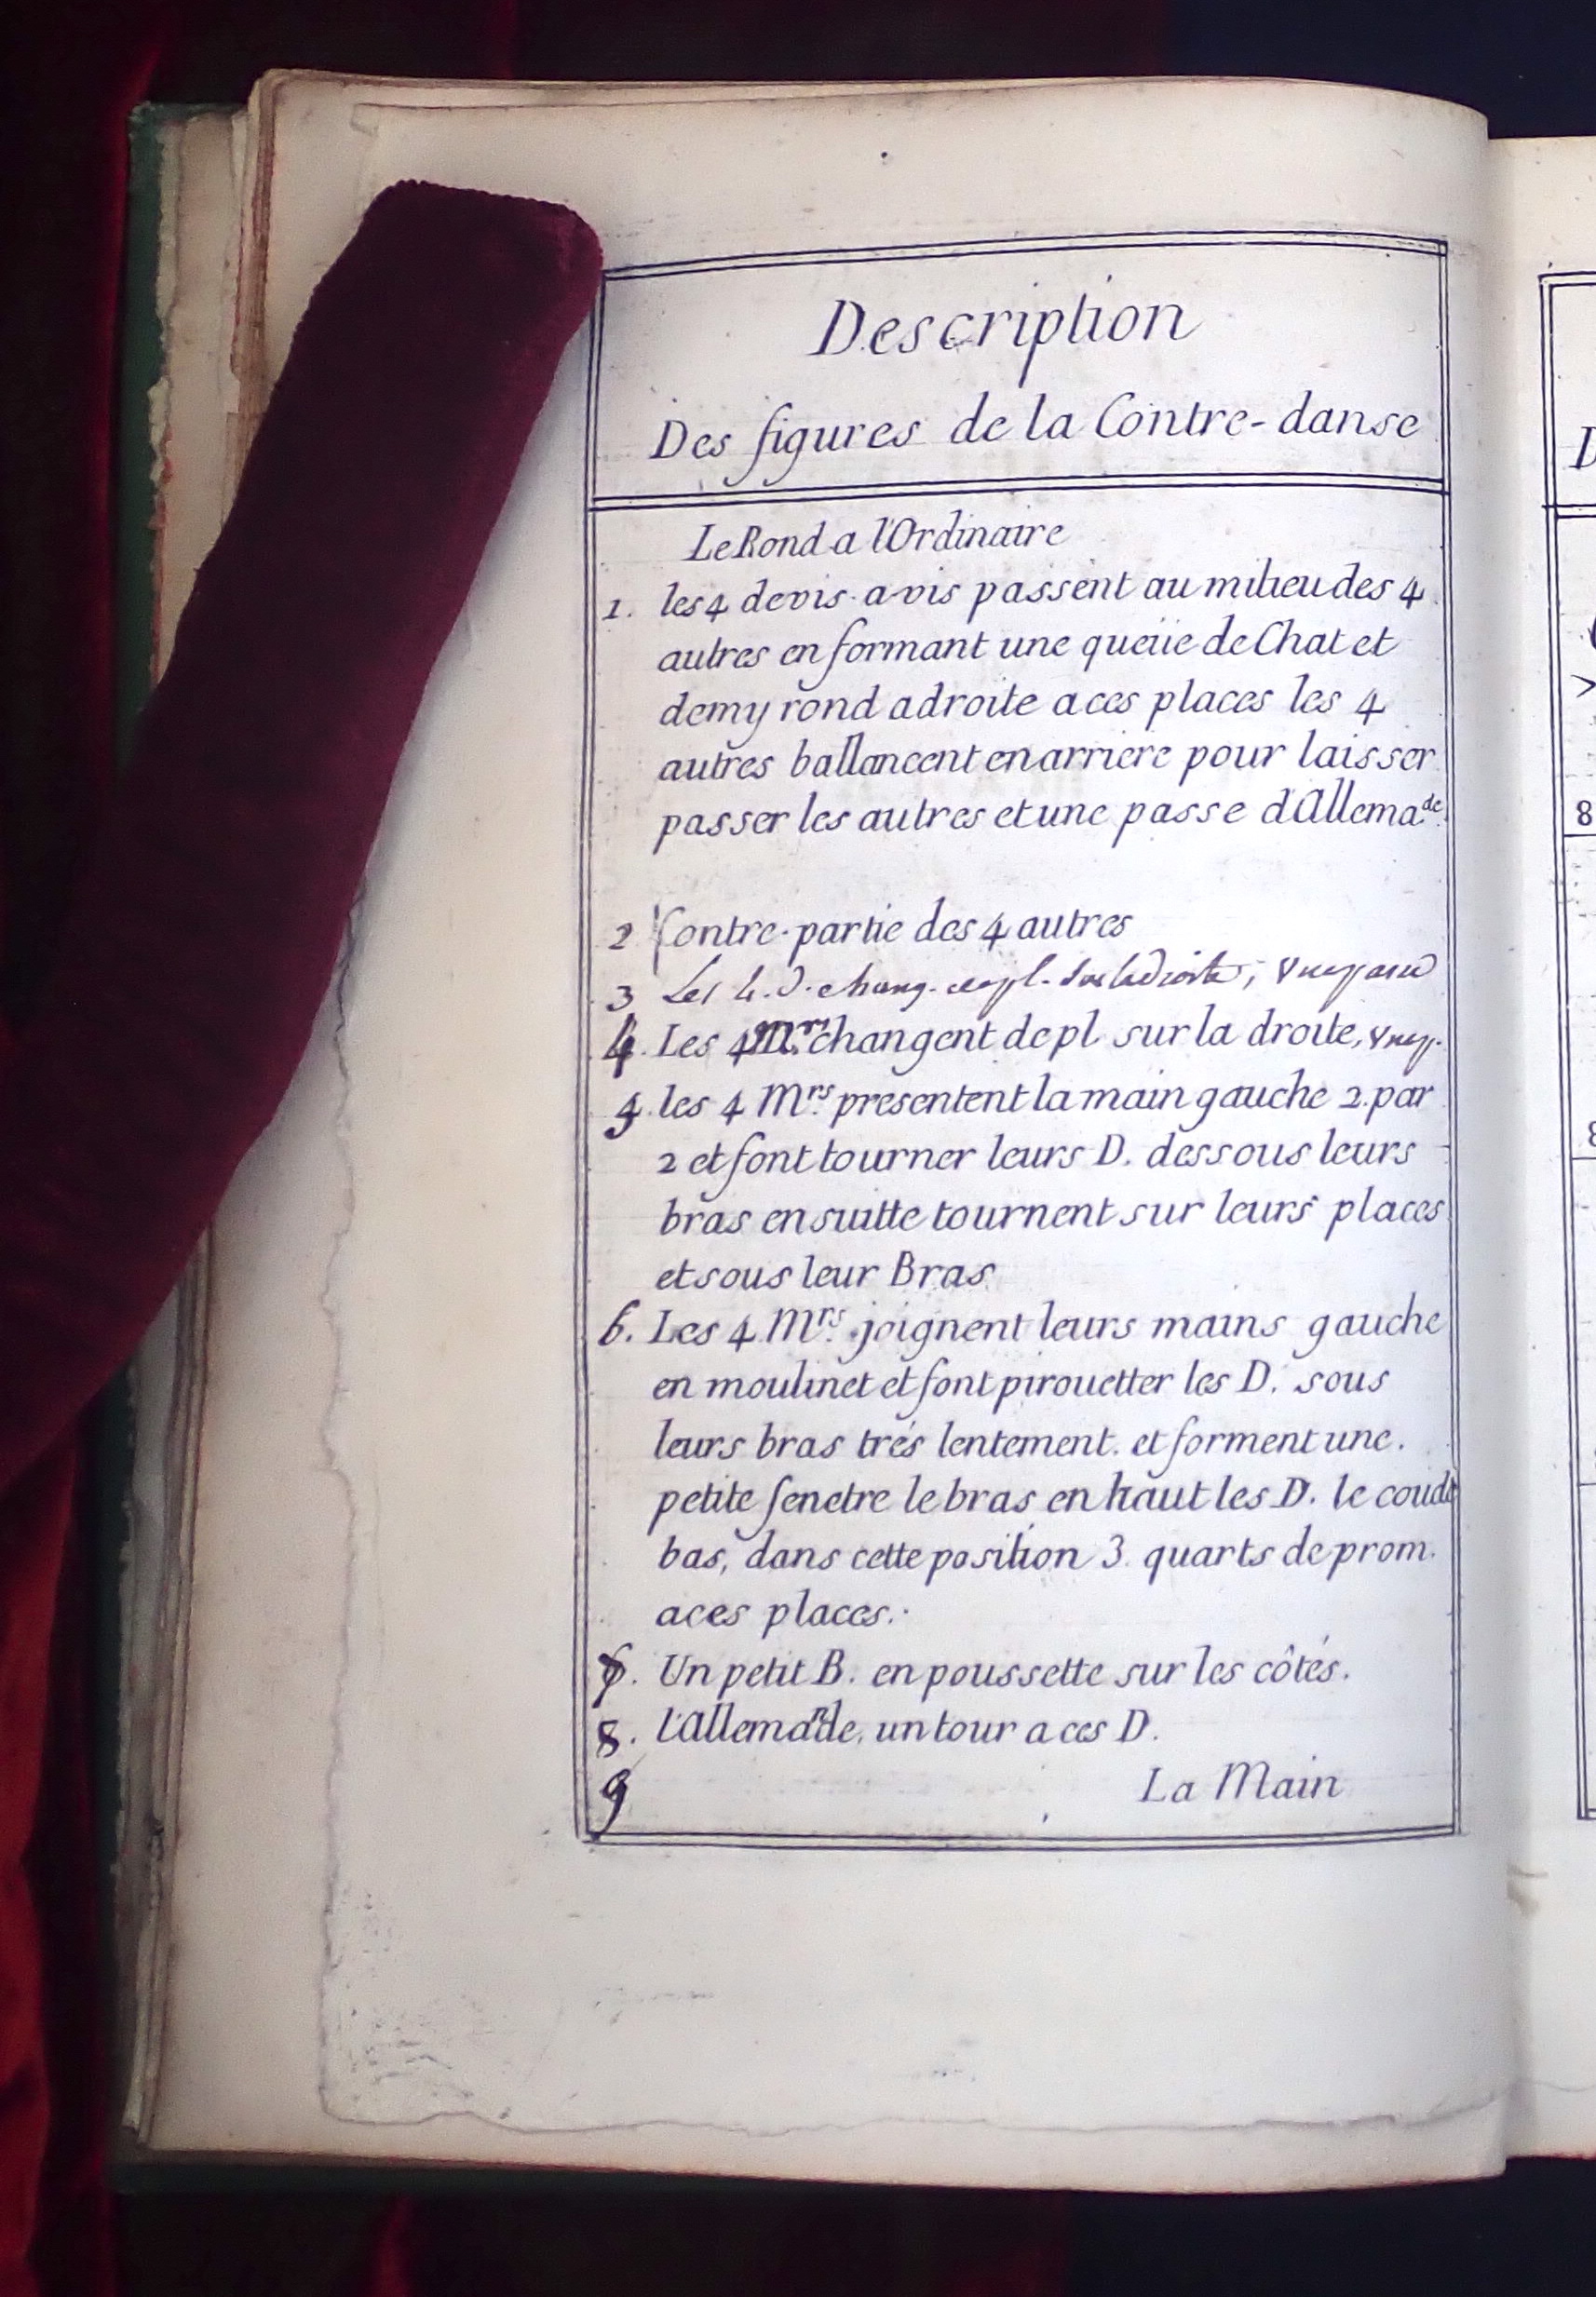 Description
Des figures de la Contre-danse
Le Rond a l'Ordinaire
1. les 4 de vis-a-vis passent au milieu des 4
autres en formant une queüe de Chat et
demy rond a droite a ces places les 4
autres ballancent en arriere pour laisser
passer les autres et une passe d'Allema.de
2 Contre-partie des 4 autres
3 Les 4. D. chang. de pl. sur la droite,
4. Les 4 Mrs. changent de pl sur la droite,
5. les 4 Mrs. presentent la main gauche 2. par
2 et font tourner leurs D. dessous leurs
bras ensuitte tournent sur leurs places
et sous leur Bras
6. Les 4 Mrs. joignent leurs mains gauche
en moulinet et font pirouetter les D. sous
leurs bras trés lentement. et forment une.
petite fenetre le bras en haut les D. le coude
bas, dans cette position 3 quarts de prom.
a ces places.
7. Un petit B. en poussette sur les côtés.
8. l'Allemande, un tour a ces D.
9 La Main
D
8